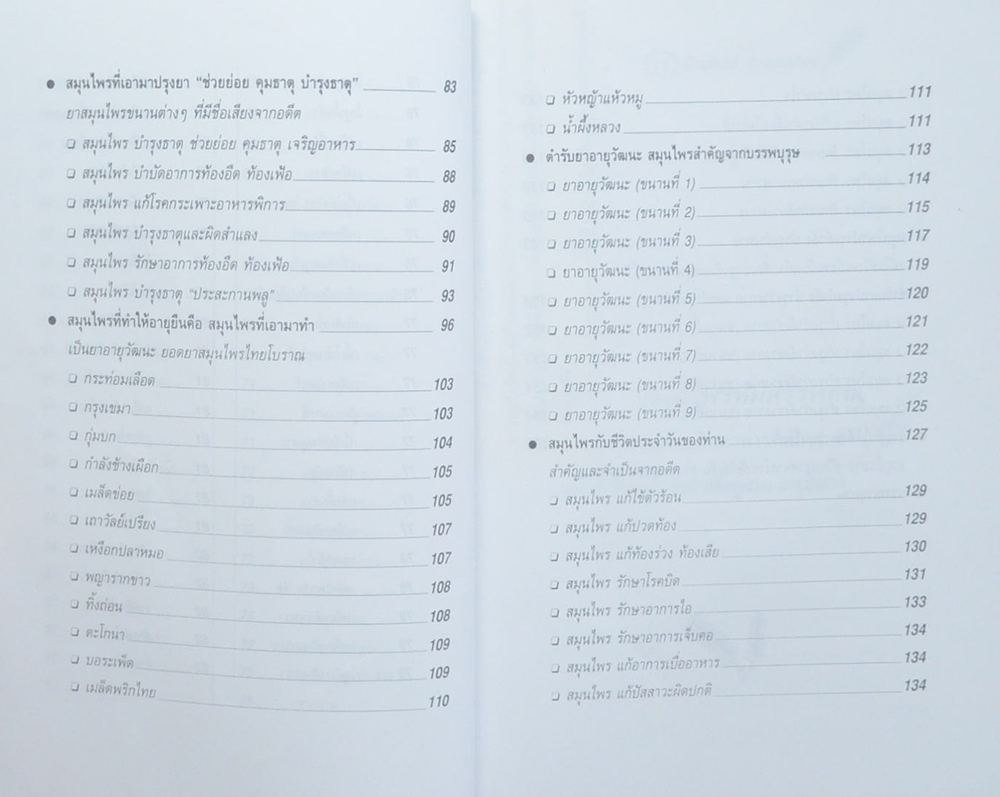 ● สมุนไพรที่เอามาปรุงยา "ช่วยย่อย คุมธาตุ บำรุงธาตุ" 83
ยาสมุนไพรขนานต่างๆ ที่มีชื่อเสียงจากอดีต
❏ สมุนไพร บำรุงธาตุ ช่วยย่อย คุมธาตุ เจริญอาหาร 85
❏ สมุนไพร บำบัดอาการท้องอืด ท้องเฟ้อ 88
❏ สมุนไพร แก้โรคกระเพาะอาหารพิการ 89
❏ สมุนไพร บำรุงธาตุและผิดสำแลง 90
❏ สมุนไพร รักษาอาการท้องอืด ท้องเฟ้อ 91
❏ สมุนไพร บำรุงธาตุ "ประสะกานพลู" 93
● สมุนไพรที่ทำให้อายุยืนคือ สมุนไพรที่เอามาทำ 96
เป็นยาอายุวัฒนะ ยอดยาสมุนไพรไทยโบราณ
❏ กระท่อมเลือด 103
❏ กรุงเขมา 103
❏ กุ่มบก 104
❏ กำลังช้างเผือก 105
❏ เมล็ดข่อย 105
❏ เถาวัลย์เปรียง 107
❏ เหงือกปลาหมอ 107
❏ พญารากขาว 108
❏ ทิ้งถ่อน 108
❏ ตะโกนา 109
❏ บอระเพ็ด 109
❏ เมล็ดพริกไทย 110
❏ หัวหญ้าแห้วหมู 111
❏ น้ำผึ้งหลวง 111
● ตำรับยาอายุวัฒนะ สมุนไพรสำคัญจากบรรพบุรุษ 113
❏ ยาอายุวัฒนะ (ขนานที่ 1) 114
❏ ยาอายุวัฒนะ (ขนานที่ 2) 115
❏ ยาอายุวัฒนะ (ขนานที่ 3) 117
❏ ยาอายุวัฒนะ (ขนานที่ 4) 119
❏ ยาอายุวัฒนะ (ขนานที่ 5) 120
❏ ยาอายุวัฒนะ (ขนานที่ 6) 121
❏ ยาอายุวัฒนะ (ขนานที่ 7) 122
❏ ยาอายุวัฒนะ (ขนานที่ 8) 123
❏ ยาอายุวัฒนะ (ขนานที่ 9) 125
● สมุนไพรกับชีวิตประจำวันของท่าน 127
สำคัญและจำเป็นจากอดีต
❏ สมุนไพร แก้ไข้ตัวร้อน 129
❏ สมุนไพร แก้ปวดท้อง 129
❏ สมุนไพร แก้ท้องร่วง ท้องเสีย 130
❏ สมุนไพร รักษาโรคบิด 131
❏ สมุนไพร รักษาอาการไอ 133
❏ สมุนไพร รักษาอาการเจ็บคอ 134
❏ สมุนไพร แก้อาการเบื่ออาหาร 134
❏ สมุนไพร แก้ปัสสาวะผิดปกติ 134